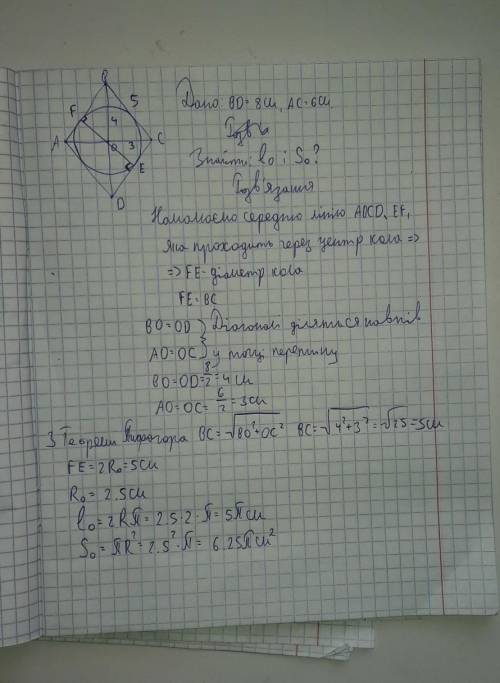 B
5
F
4
A
O
3
C
E
D
Дано: BD = 8см, AC = 6см
Знайти: l₀ і S₀?
Розв'язання
Намалюємо середню лінію ABCD, EF,
яка проходить через центр кола =>
=> FE - діаметр кола
FE = BC
BO = OD } Діагоналі діляться навпіл
AO = OC } у точці перетину
BO = OD = 8/2 = 4см
AO = OC = 6/2 = 3см
З Теореми Піфагора BC = √BO² + OC² BC = √4² + 3² = √25 = 5см
FE = 2R₀ = 5см
R₀ = 2.5см
l₀ = 2Rπ = 2.5·2·π = 5πсм
S₀ = πR² = 2.5²·π = 6.25πсм²